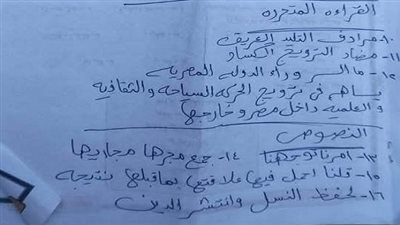 القراءه المتحرره
١٠- مرادف التليد العريق
١١- مضاد الترويج الكساد
١٢- ما السر وراء الدوله المصريه
فى ترويج الحركه السياحه والثقافيه
والعلميه داخل مصر وخارجها
النصوص
١٣- ١٤- جمع مجرها مجاريها
١٥- قلنا احمل فيها علاقتها بماقبلها نتيجه
١٦- لحفظ النسل وانتشر الدين